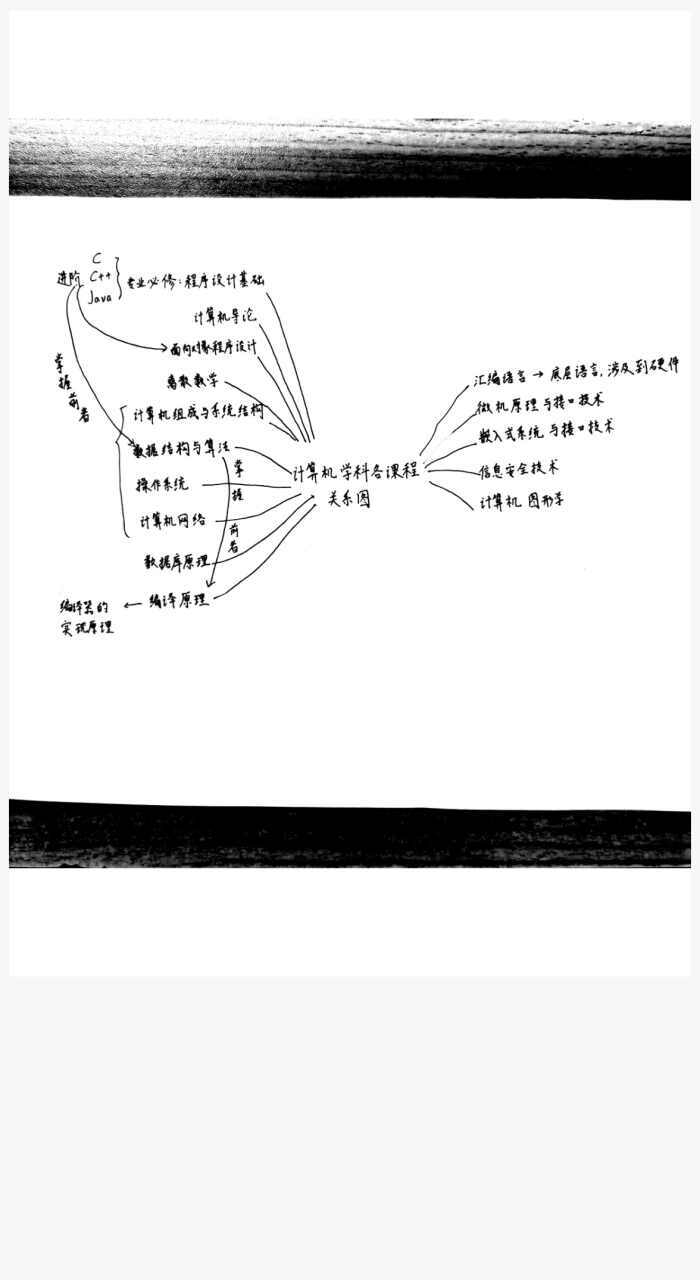 C
进阶 C++
Java
专业必修：程序设计基础
计算机导论
面向对象程序设计
离散数学
掌握前者
计算机组成与系统结构
数据结构与算法
操作系统
掌握前者
计算机网络
数据库原理
编译原理
编译器的
实现原理
计算机学科各课程
关系图
汇编语言 → 底层语言，涉及到硬件
微机原理与接口技术
嵌入式系统与接口技术
信息安全技术
计算机图形学